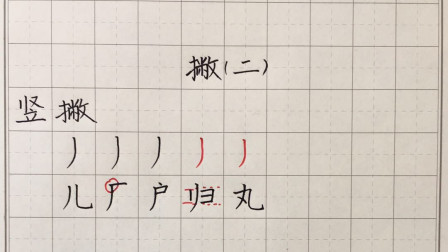 撇(二)
竖撇
丿丿丿丿丿
儿厂户归丸